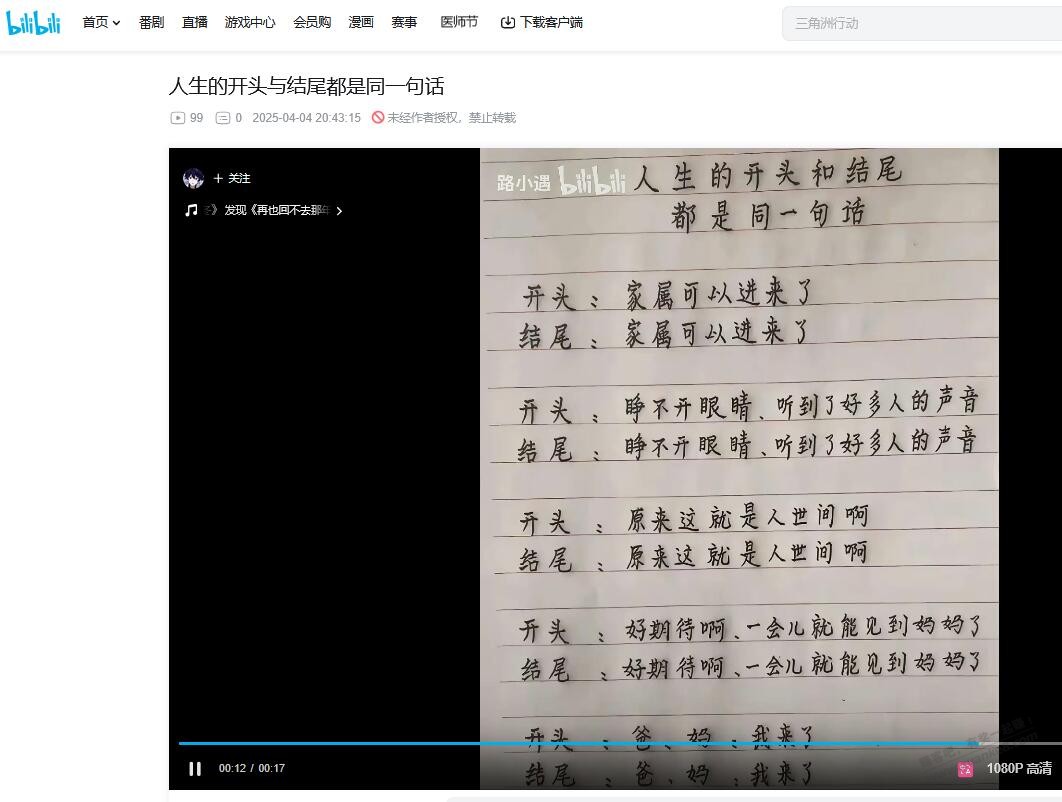 bilibili 首页 番剧 直播 游戏中心 会员购 漫画 赛事 医师节 下载客户端 三角洲行动
人生的开头与结尾都是同一句话
99 0 2025-04-04 20:43:15 未经作者授权，禁止转载
+ 关注
》 发现《再也回不去那年
路小遇 bilibili
人生的开头和结尾
都是同一句话
开头：家属可以进来了
结尾：家属可以进来了
开头：睁不开眼睛、听到了好多人的声音
结尾：睁不开眼睛、听到了好多人的声音
开头：原来这就是人世间啊
结尾：原来这就是人世间啊
开头：好期待啊、一会儿就能见到妈妈了
结尾：好期待啊、一会儿就能见到妈妈了
开头：爸、妈：我来了
结尾：爸、妈：我来了
00:12 / 00:17 1080P 高清